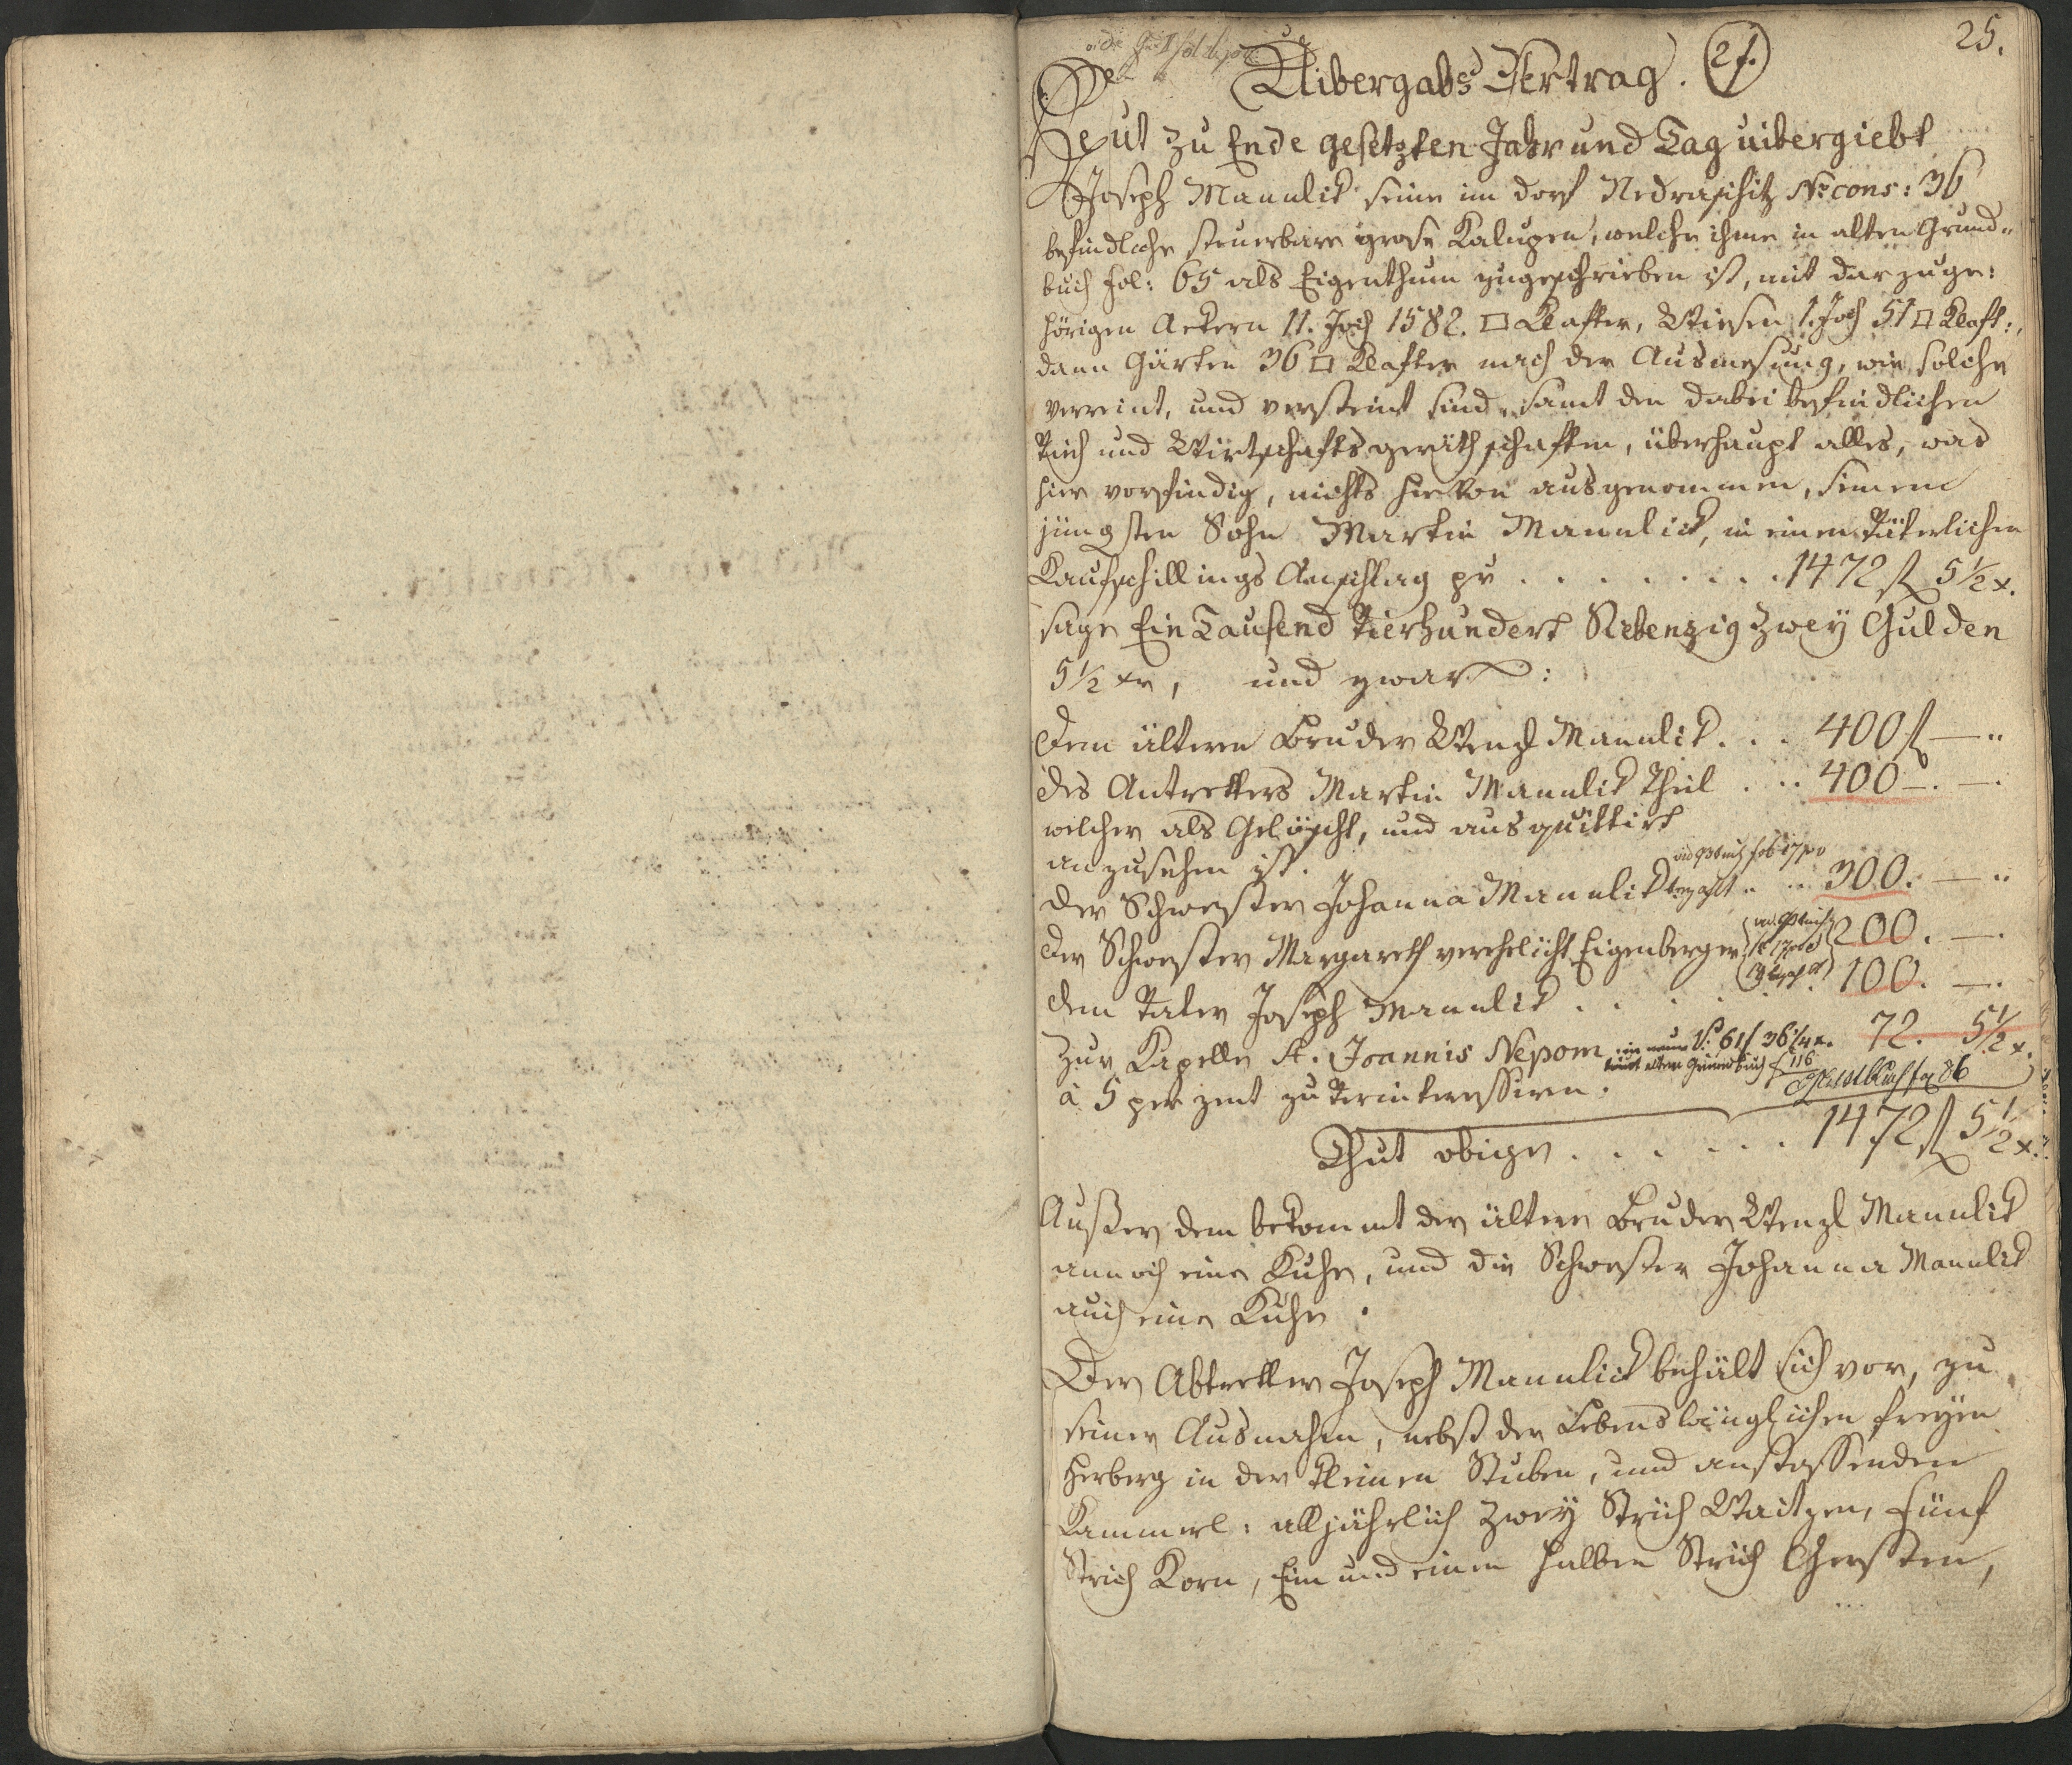 25.
Uibergabs Vertrag. 21.
Heut zu Ende gesetzten Jahr und Tag uibergiebt
Joseph Maunlik seine im Dorf Nedraschitz No cons: 36
befindliche steuerbare grose Kalupen, welche ihme in alten Grund„
buch Fol: 65 als Eigenthum zugeschrieben ist, mit darzuge:
hörigen Aekern 11. Joch 1582. □ Klafter, Wiesen 1 Joch 51 □ Klaft:,
dann Gärten 36 □ Klafter nach der Ausmesung, wie solche
verreint, und versteint sind, samt den dabei befindlichen
Vieh und Wirtschaftsgeräthschaften, überhaupt alles, was
hier vorfindig, nichts hievon ausgenommen, seinem
jüngsten Sohn Martin Maunlik, in einen Väterlichen
Kaufschillings Anschlag pr . . . . . . . . 1472 fl 5½ x.
sage Ein Tausend Vierhundert Siebenzig zwey Gulden
5½ xr, und zwar:
Dem älteren Bruder Wenzl Maunlik . . . 400 fl — „
des Antretters Martin Maunlik Theil . . . 400 — . — .
welcher als Gelöscht, und ausquittirt
anzusehen ist.
der Schwester Johanna Maunlik bezahlt . . . 300. — „
der Schwester Margareth verehelicht Eigenberger 200. — .
dem Vater Joseph Maunlik . . . . . 100. — .
Zur Kapelle St. Joannis Nepom 72. 5½ x.
laut alten Grundbuch f 116
à 5 per zent zu Verinteressiren.
Thut obige . . . . . . 1472 fl 5½ x.
Außer dem bekommt der ältere Bruder Wenzl Maunlik
annoch eine Kuhe, und die Schwester Johanna Maunlik
auch eine Kuhe.
Der Abtretter Joseph Maunlik behält sich vor, zu
seiner Ausnahm, nebst der Lebenslänglichen freyen
Herberg in der kleinen Stuben, und anstossenden
Kammerl: alljährlich zwey Strich Waitzen, Fünf
Strich Korn, Ein und einen halben Strich Gersten,